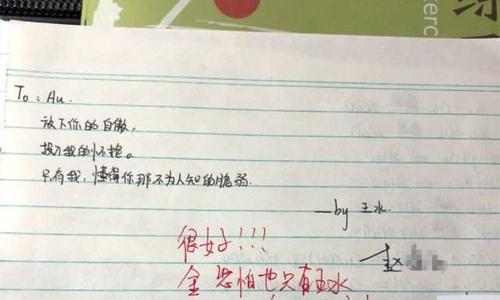 To: Au.
放下你的自傲，
投入我的怀抱。
只有我，懂得你那不为人知的脆弱.
—by 王水.
很好!!!
金 恐怕也只有王水